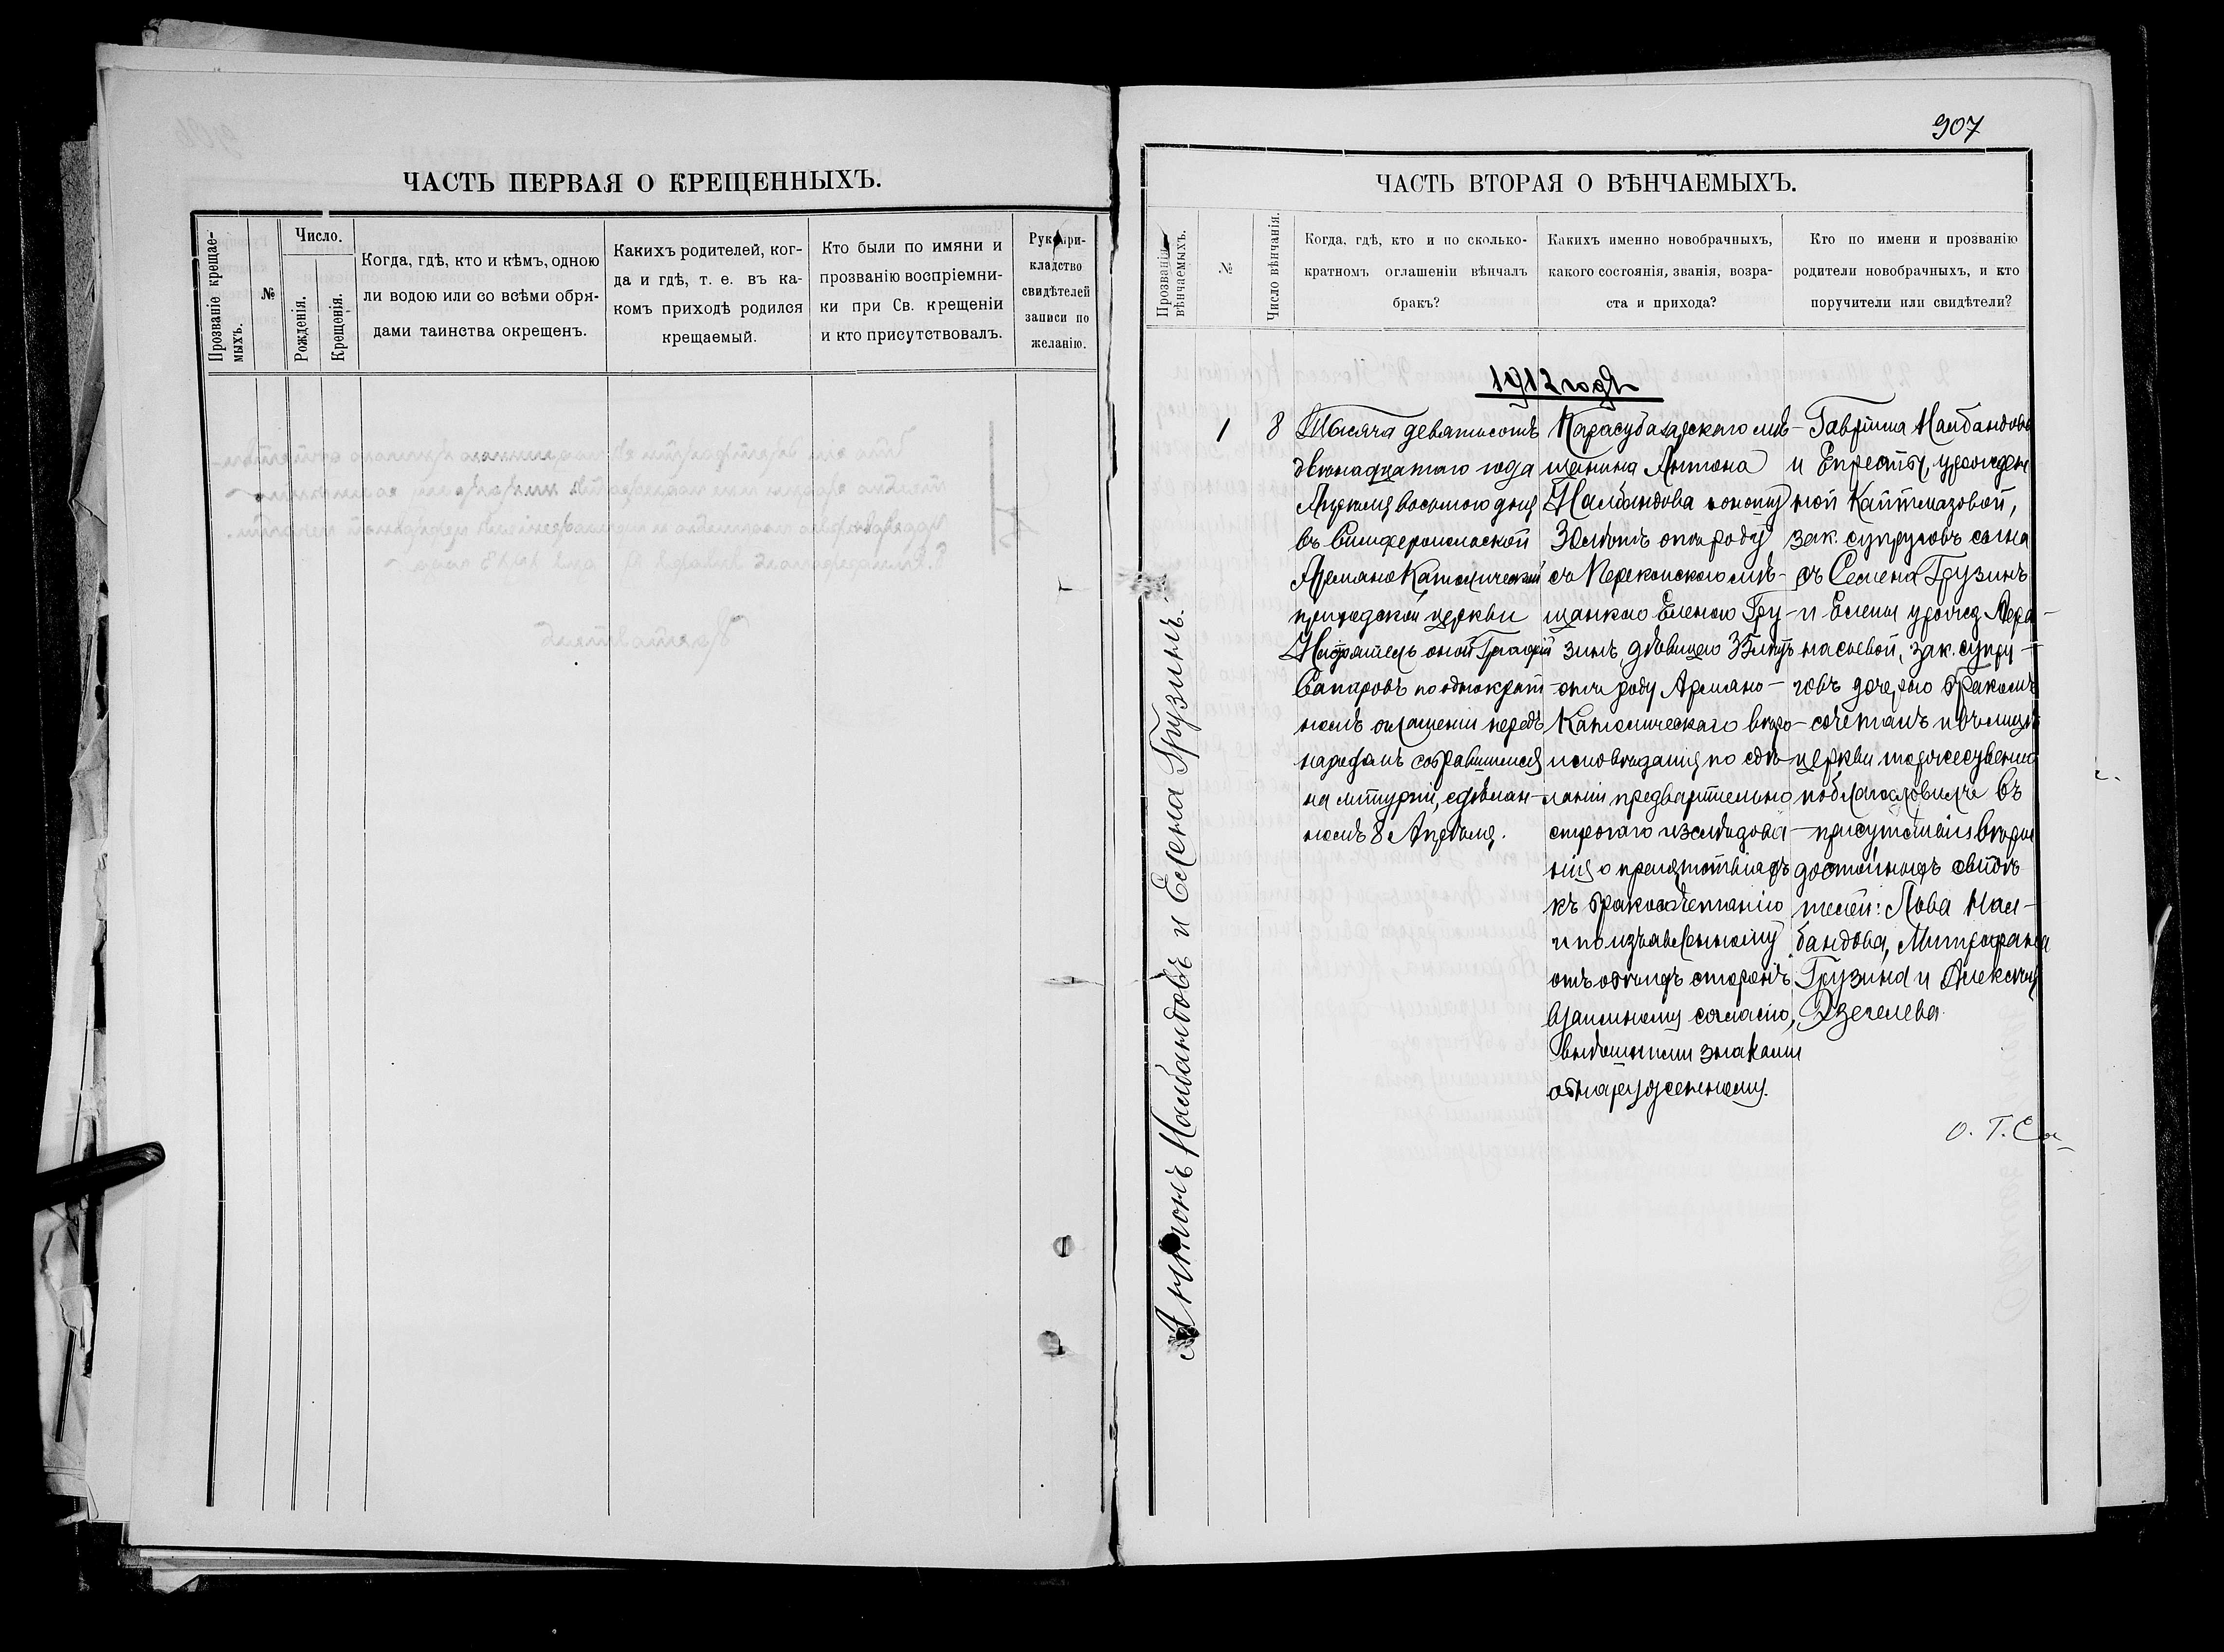 ЧАСТЬ ПЕРВАЯ О КРЕЩЕННЫХЪ.
Прозваніе крещае-
мыхъ.
№
Число.
Рожденія.
Крещенія.
Когда, гдѣ, кто и кѣмъ, одною
ли водою или со всѣми обря-
дами таинства окрещенъ.
Какихъ родителей, ког-
да и гдѣ, т. е. въ ка-
комъ приходѣ родился
крещаемый.
Кто были по имяни и
прозванію воспріемни-
ки при Св. крещеніи
и кто присутствовалъ.
Рукопри-
кладство
свидѣтелей
записи по
желанію.
907
ЧАСТЬ ВТОРАЯ О ВѢНЧАЕМЫХЪ.
Прозваніе
вѣнчаемыхъ.
№
Число вѣнчанія.
Когда, гдѣ, кто и по сколько-
кратномъ оглашеніи вѣнчалъ
бракъ?
Какихъ именно новобрачныхъ,
какого состоянія, званія, возра-
ста и прихода?
Кто по имени и прозванію
родители новобрачныхъ, и кто
поручители или свидѣтели?
1912 годъ
Антонъ Налбандовъ и Елена Грузинъ.
1
8
Тысяча девятьсотъ
двѣнадцатаго года
Апрѣля восьмого дня
въ Симферопольской
Армяно Католической
приходской церкви
Настоятель оной Григорій
Сапаровъ по однократ
номъ оглашеніи передъ
народомъ собравшимся
на литургіи, сдѣлан-
номъ 8 Апрѣля.
Карасубазарскаго мѣ-
щанина Антона
Налбандова юношу
30 лѣтъ отъ роду
съ Перекопскою мѣ-
щанкою Еленою Гру-
зинъ, дѣвицею 35 лѣтъ
отъ роду Армяно-
Католическаго вѣро-
исповѣданія по сдѣ-
ланіи предварительно
строгаго изслѣдова-
нія о препятствіяхъ
къ бракосочетанію
и по изъявленному
отъ обоихъ сторонъ
взаимному согласію,
видимыми знаками
обнаруженному.
Гавріила Налбандова
и Епрести, урожден
ной Кайтмазовой,
зак. супруговъ сына
съ Семена Грузинъ
и Елены урожд. Аера-
насьевой, зак. супру-
говъ дочерью бракомъ
сочеталъ и въ лицѣ
церкви торжественно
поблагословилъ въ
присутствіи вѣры
достойныхъ свидѣ
телей: Льва Нал-
бандова, Митрофана
Грузина и Алексѣя
Дзегелева.
О. Г. Са-